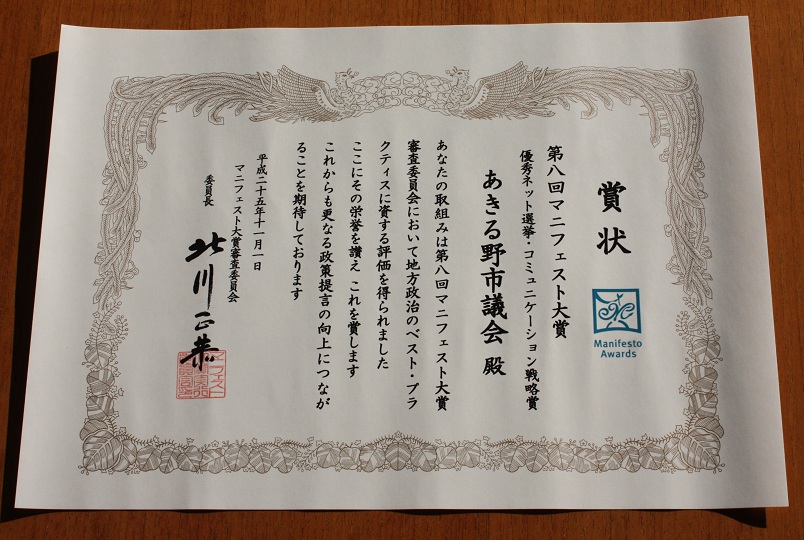 賞状
Manifesto
Awards
第八回マニフェスト大賞
優秀ネット選挙・コミュニケーション戦略賞
あきる野市議会 殿
あなたの取組みは第八回マニフェスト大賞
審査委員会において地方政治のベスト・プラ
クティスに資する評価を得られました
ここにその栄誉を讃え これを賞します
これからも更なる政策提言の向上につなが
ることを期待しております
平成二十五年十一月一日
マニフェスト大賞審査委員会
委員長 北川正恭